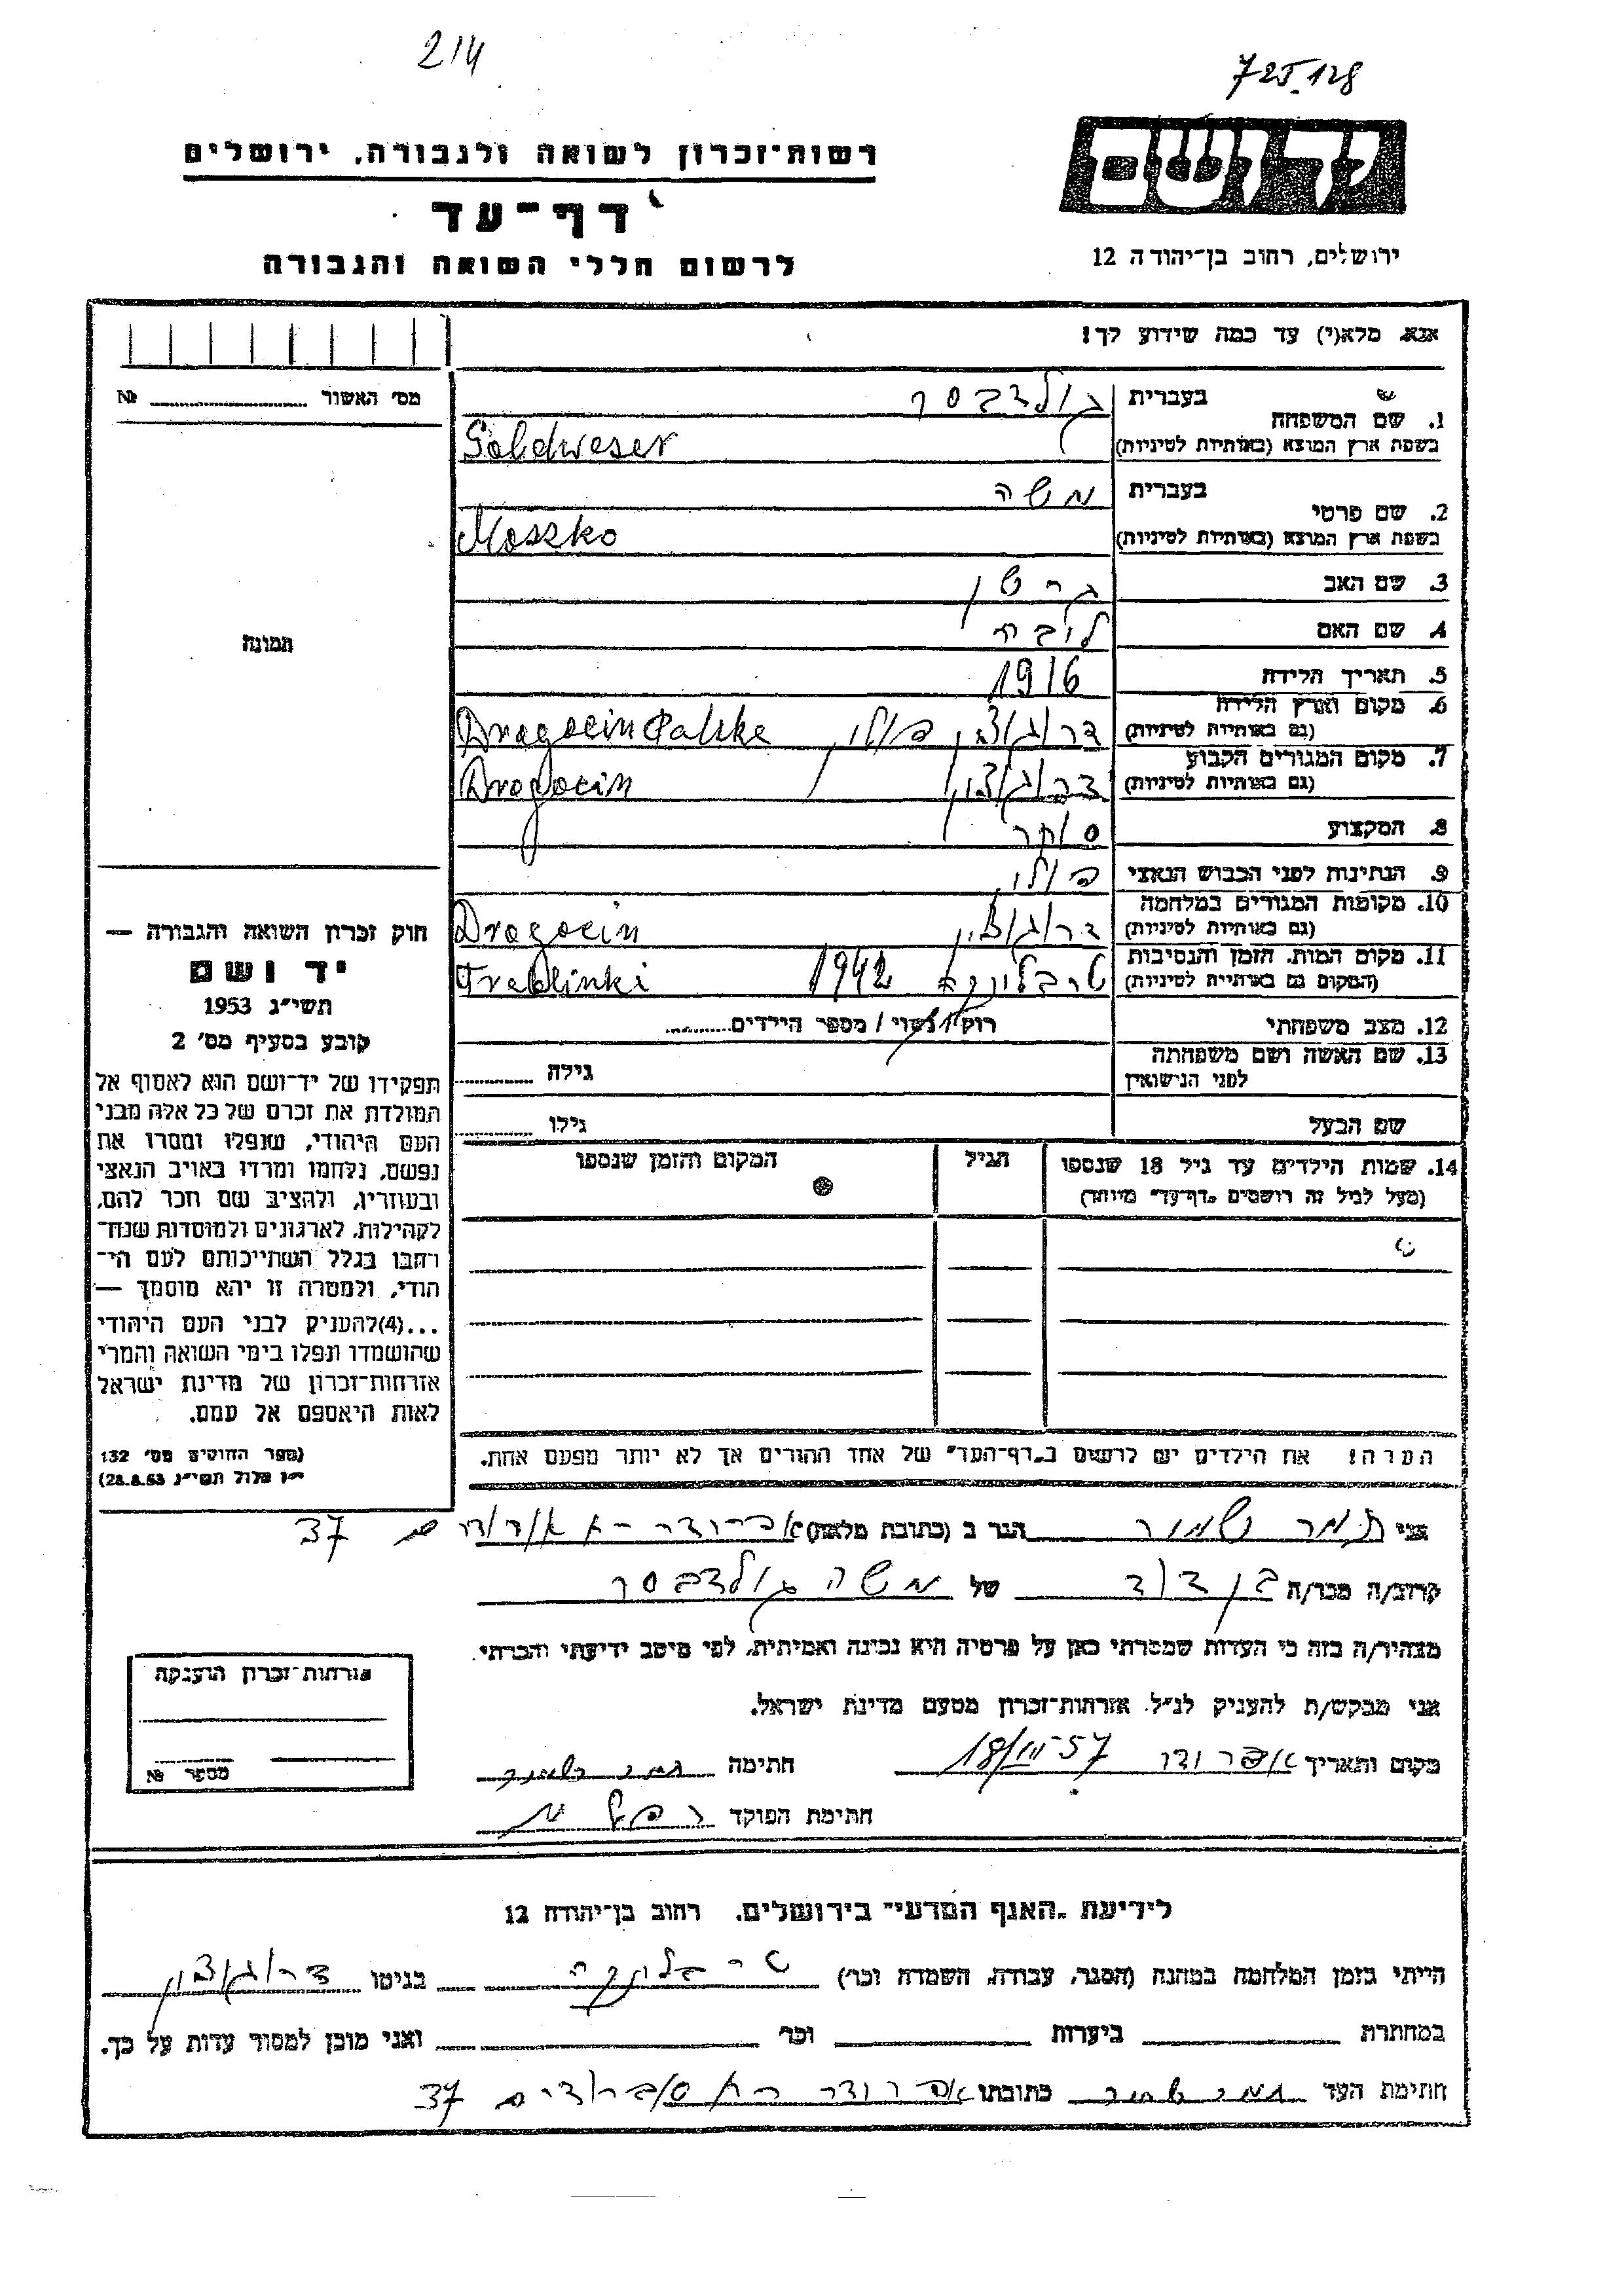 214
725.128
רשות־זכרון לשואה ולגבורה, ירושלים
יד ושם
דף־עד
לרשום חללי השואה והגבורה
ירושלים, רחוב בן־יהודה 12
אנא, מלא(י) עד כמה שידוע לך!
מס׳ האשור № 
1. שם המשפחה בעברית גולדבסר
בשפת ארץ המוצא (באותיות לטיניות) Goldweser
2. שם פרטי בעברית משה
בשפת ארץ המוצא (באותיות לטיניות) Moszko
3. שם האב גרשון
4. שם האם ליבה
תמונה
5. תאריך הלידה 1916
6. מקום וארץ הלידה (גם באותיות לטיניות) דרוגוצין פולין Drogocin Polske
7. מקום המגורים הקבוע (גם באותיות לטיניות) דרוגוצין Drogocin
8. המקצוע סוחר
9. הנתינות לפני הכבוש הנאצי פולין
10. מקומות המגורים במלחמה (גם באותיות לטיניות) דרוגוצין Drogocin
11. מקום המות, הזמן והנסיבות (המקום גם באותיות לטיניות) טרבלינקא 1942 Treblinki
12. מצב משפחתי רווק / נשוי / מספר הילדים
13. שם האשה ושם משפחתה לפני הנישואין גילה
שם הבעל גילו
14. שמות הילדים עד גיל 18 שנספו הגיל המקום והזמן שנספו
(מעל לגיל זה רושמים „דף־עד” מיוחד)
הערה! את הילדים יש לרשום ב„דף־העד” של אחד ההורים אך לא יותר מפעם אחת.
חוק זכרון השואה והגבורה —
יד ושם
תשי״ג 1953
קובע בסעיף מס׳ 2
תפקידו של יד־ושם הוא לאסוף אל
המולדת את זכרם של כל אלה מבני
העם היהודי, שנפלו ומסרו את
נפשם, נלחמו ומרדו באויב הנאצי
ובעוזריו, ולהציב שם וזכר להם,
לקהילות, לארגונים ולמוסדות שנח־
רבו בגלל השתייכותם לעם הי־
הודי, ולמטרה זו יהא מוסמך —
...(4)להעניק לבני העם היהודי
שהושמדו ונפלו בימי השואה והמרי
אזרחות־זכרון של מדינת ישראל
לאות היאספם אל עמם.
(ספר החוקים מס׳ 132
י״ז אלול תשי״ג 28.8.53)
אני תמר שמיר הגר ב (כתובת מלאה) 37
קרוב/ה מכר/ה בן דוד של משה גולדבסר
מצהיר/ה בזה כי העדות שמסרתי כאן על פרטיה היא נכונה ואמיתית, לפי מיטב ידיעתי והכרתי.
אני מבקש/ת להעניק לנ״ל אזרחות־זכרון מטעם מדינת ישראל.
מקום ותאריך 18/III 57 חתימה
חתימת הפוקד
אזרחות־זכרון הוענקה
מספר №
לידיעת „האגף המדעי” בירושלים, רחוב בן־יהודה 12
הייתי בזמן המלחמה במחנה (הסגר, עבודה, השמדה וכו׳) טרבלינקה בגיטו דרוגוצין
במחתרת ביערות וכו׳ ואני מוכן למסור עדות על כך.
חתימת העד כתובתו 37